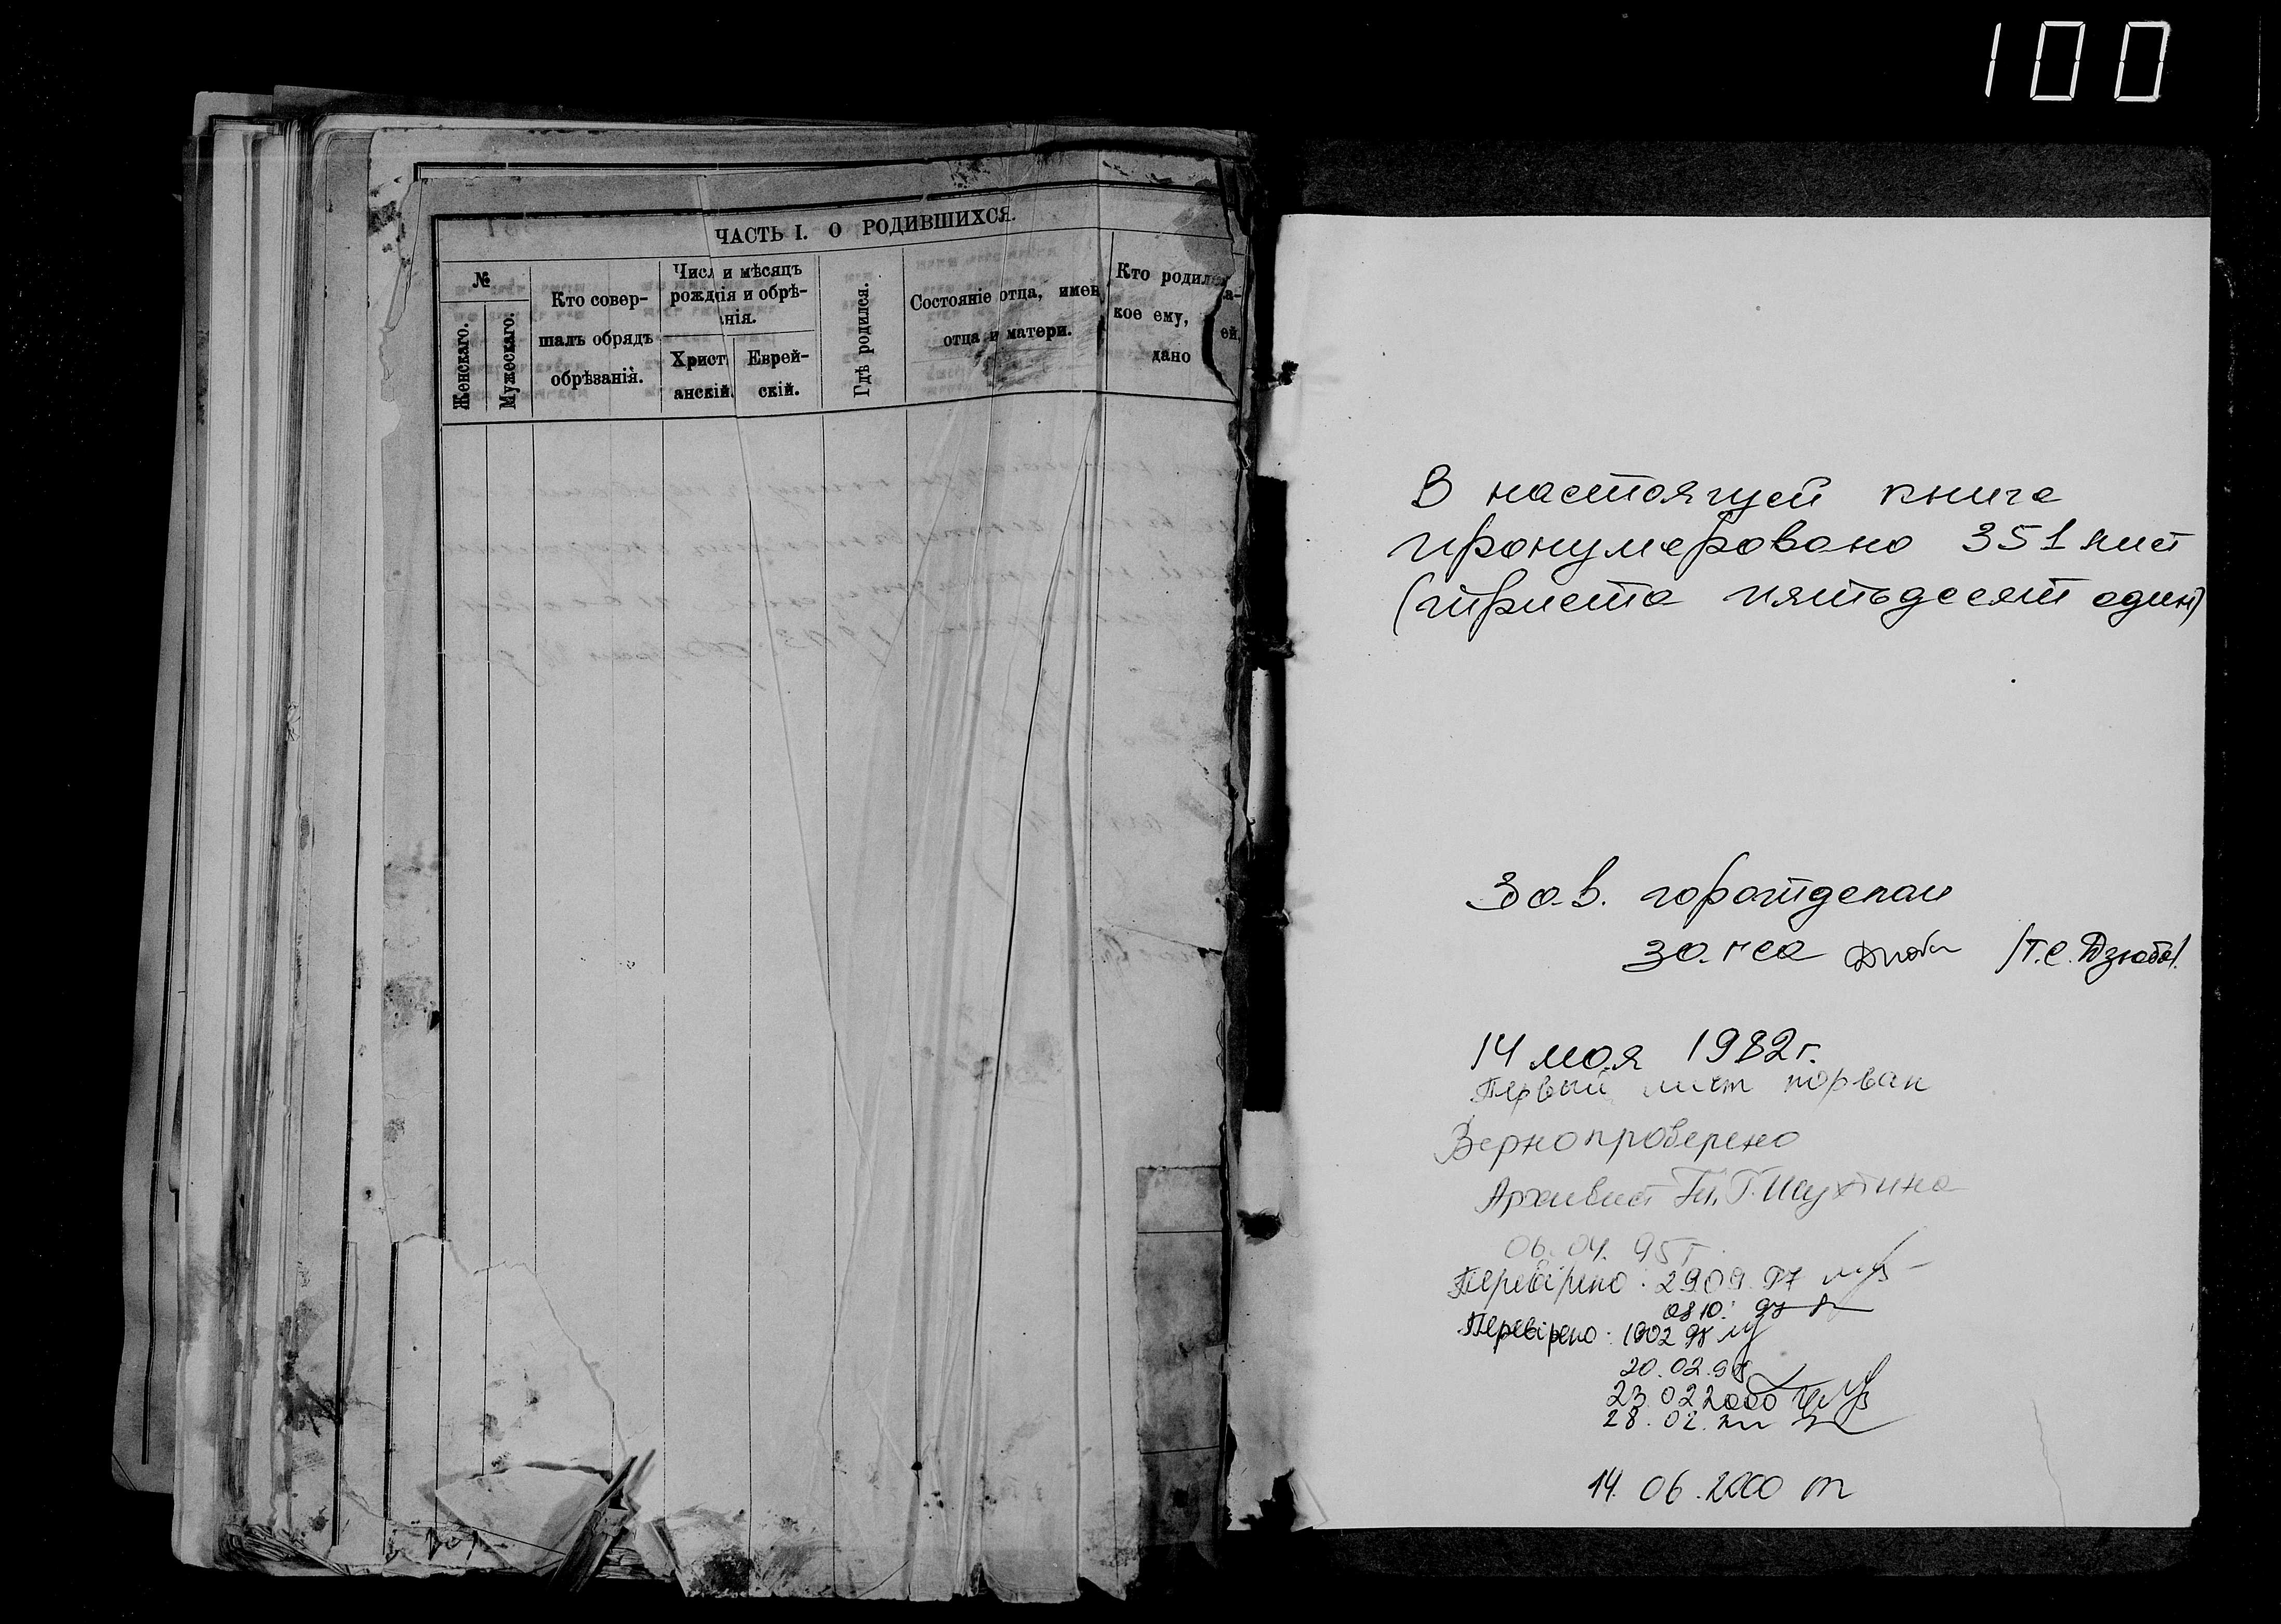 100
ЧАСТЬ I. О РОДИВШИХСЯ.
№
Женскаго.
Мужескаго.
Кто совер-
шалъ обрядъ
обрѣзанія.
Числ и мѣсяцъ
рождія и обрѣ-
нія.
Христ
анскій.
Еврей-
скій.
Гдѣ родился.
Состояніе отца, имен
отца и матери.
Кто родил
кое ему,
дано
а-
ей
В настоящей книге
пронумеровано 351 лист
(триста пятьдесят один)
Зав. горотделом
загса /Т.С. Дзюба/.
14 мая 1982 г.
Первый лист порван
Верно проверено
Архивист
06.04.95г.
Перевірено: 29 09.97
08 10. 97
Перевірено: 1002 98
20.02.98
23.02 2000
28.02.
14.06.2000